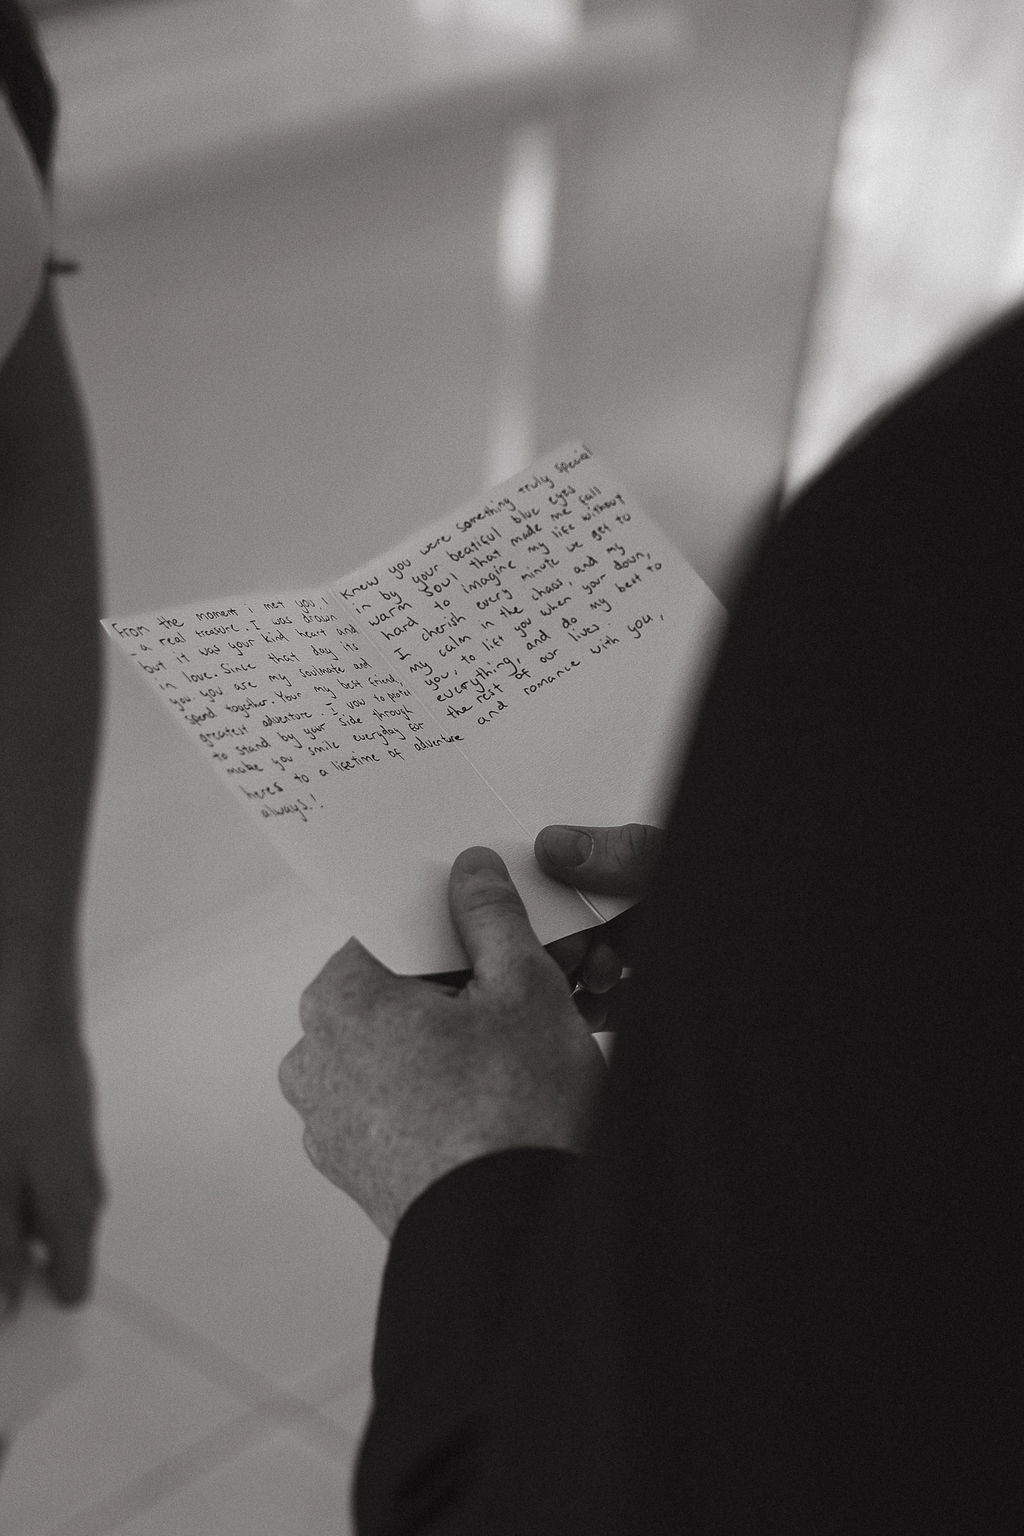 From the moment i met you, I Knew you were something truly special
- a real treasure. I was drawn in by your beatiful blue eyes
but it was your kind heart and warm soul that made me fall
in love. Since that day its hard to imagine my life without
you. you are my soulmate and I cherish every minute we get to
spend together. Your my best friend, my calm in the chaos, and my
greatest adventure. I vow to protect you, to lift you when your down,
to stand by your side through everything, and do my best to
make you smile everyday for the rest of our lives.
heres to a lifetime of adventure and romance with you,
always.!